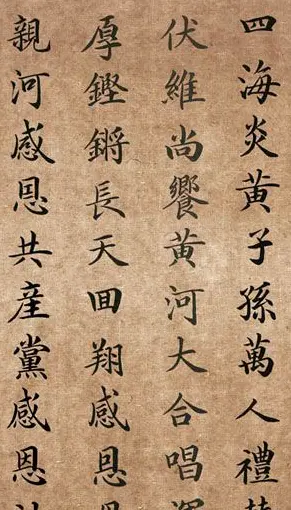 四海炎黄子孫萬人禮
伏維尚饗黄河大合唱
厚鏗鏘長天囬翔感恩
親河感恩共產黨感恩